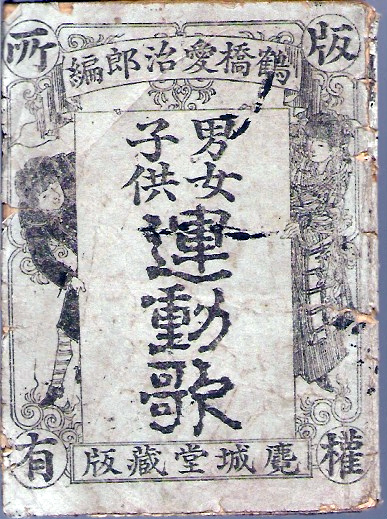 版權所有
鶴橋愛治郎編
男女
子供
運動歌
麑城堂藏版